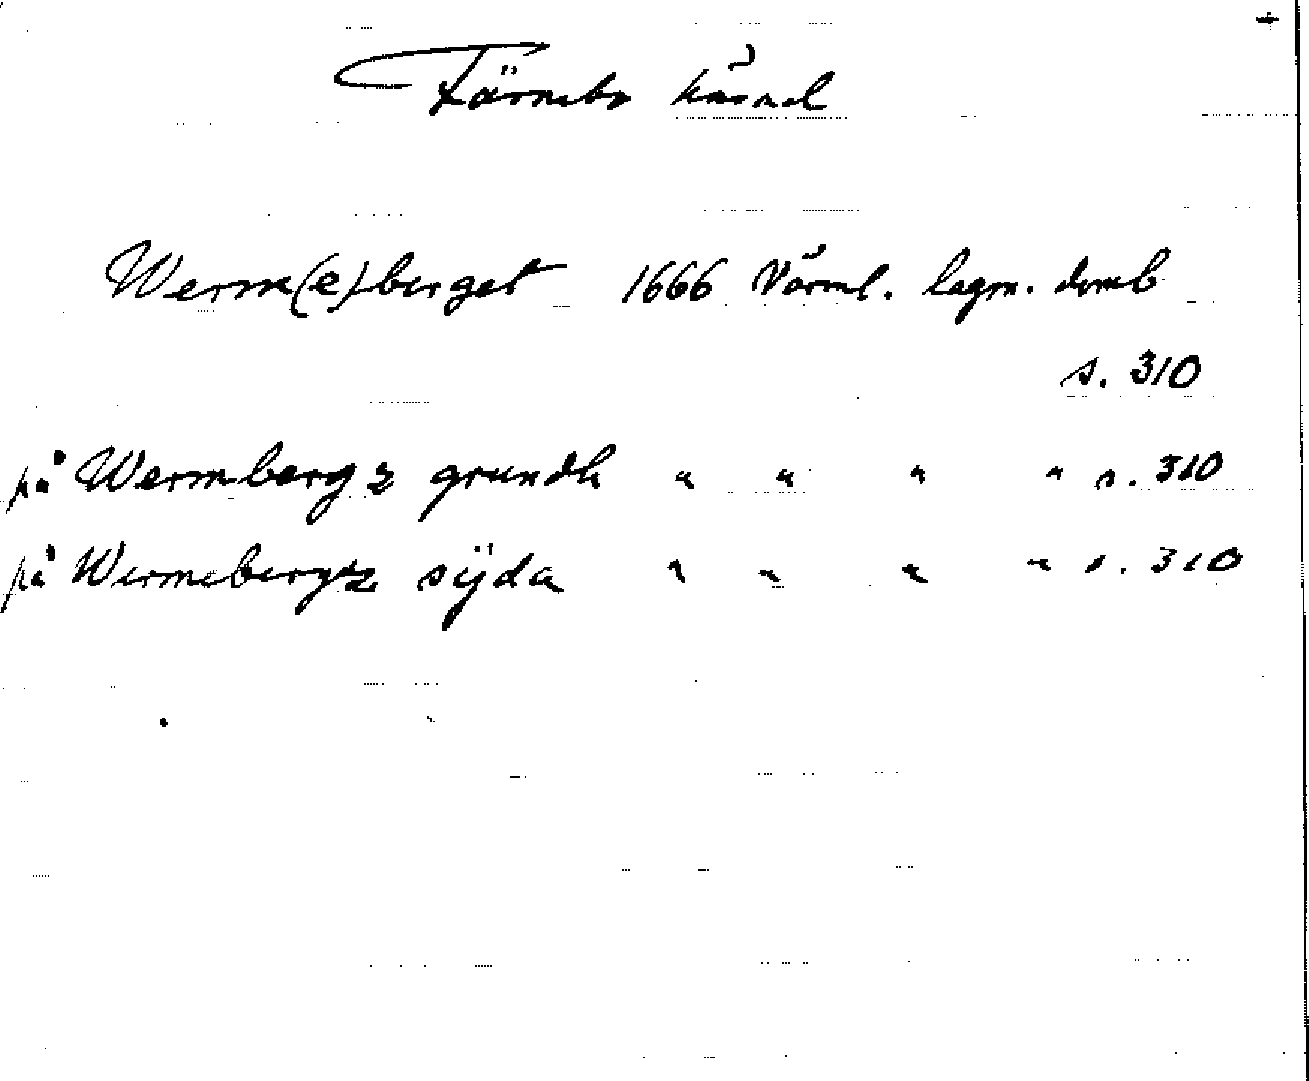 Färnebo härad
Werm(e)berget 1666 Värml. lagm. domb
s. 310
på Wermbergz grundh " " " " s. 310
på Wermebergz sÿda " " " " s. 310